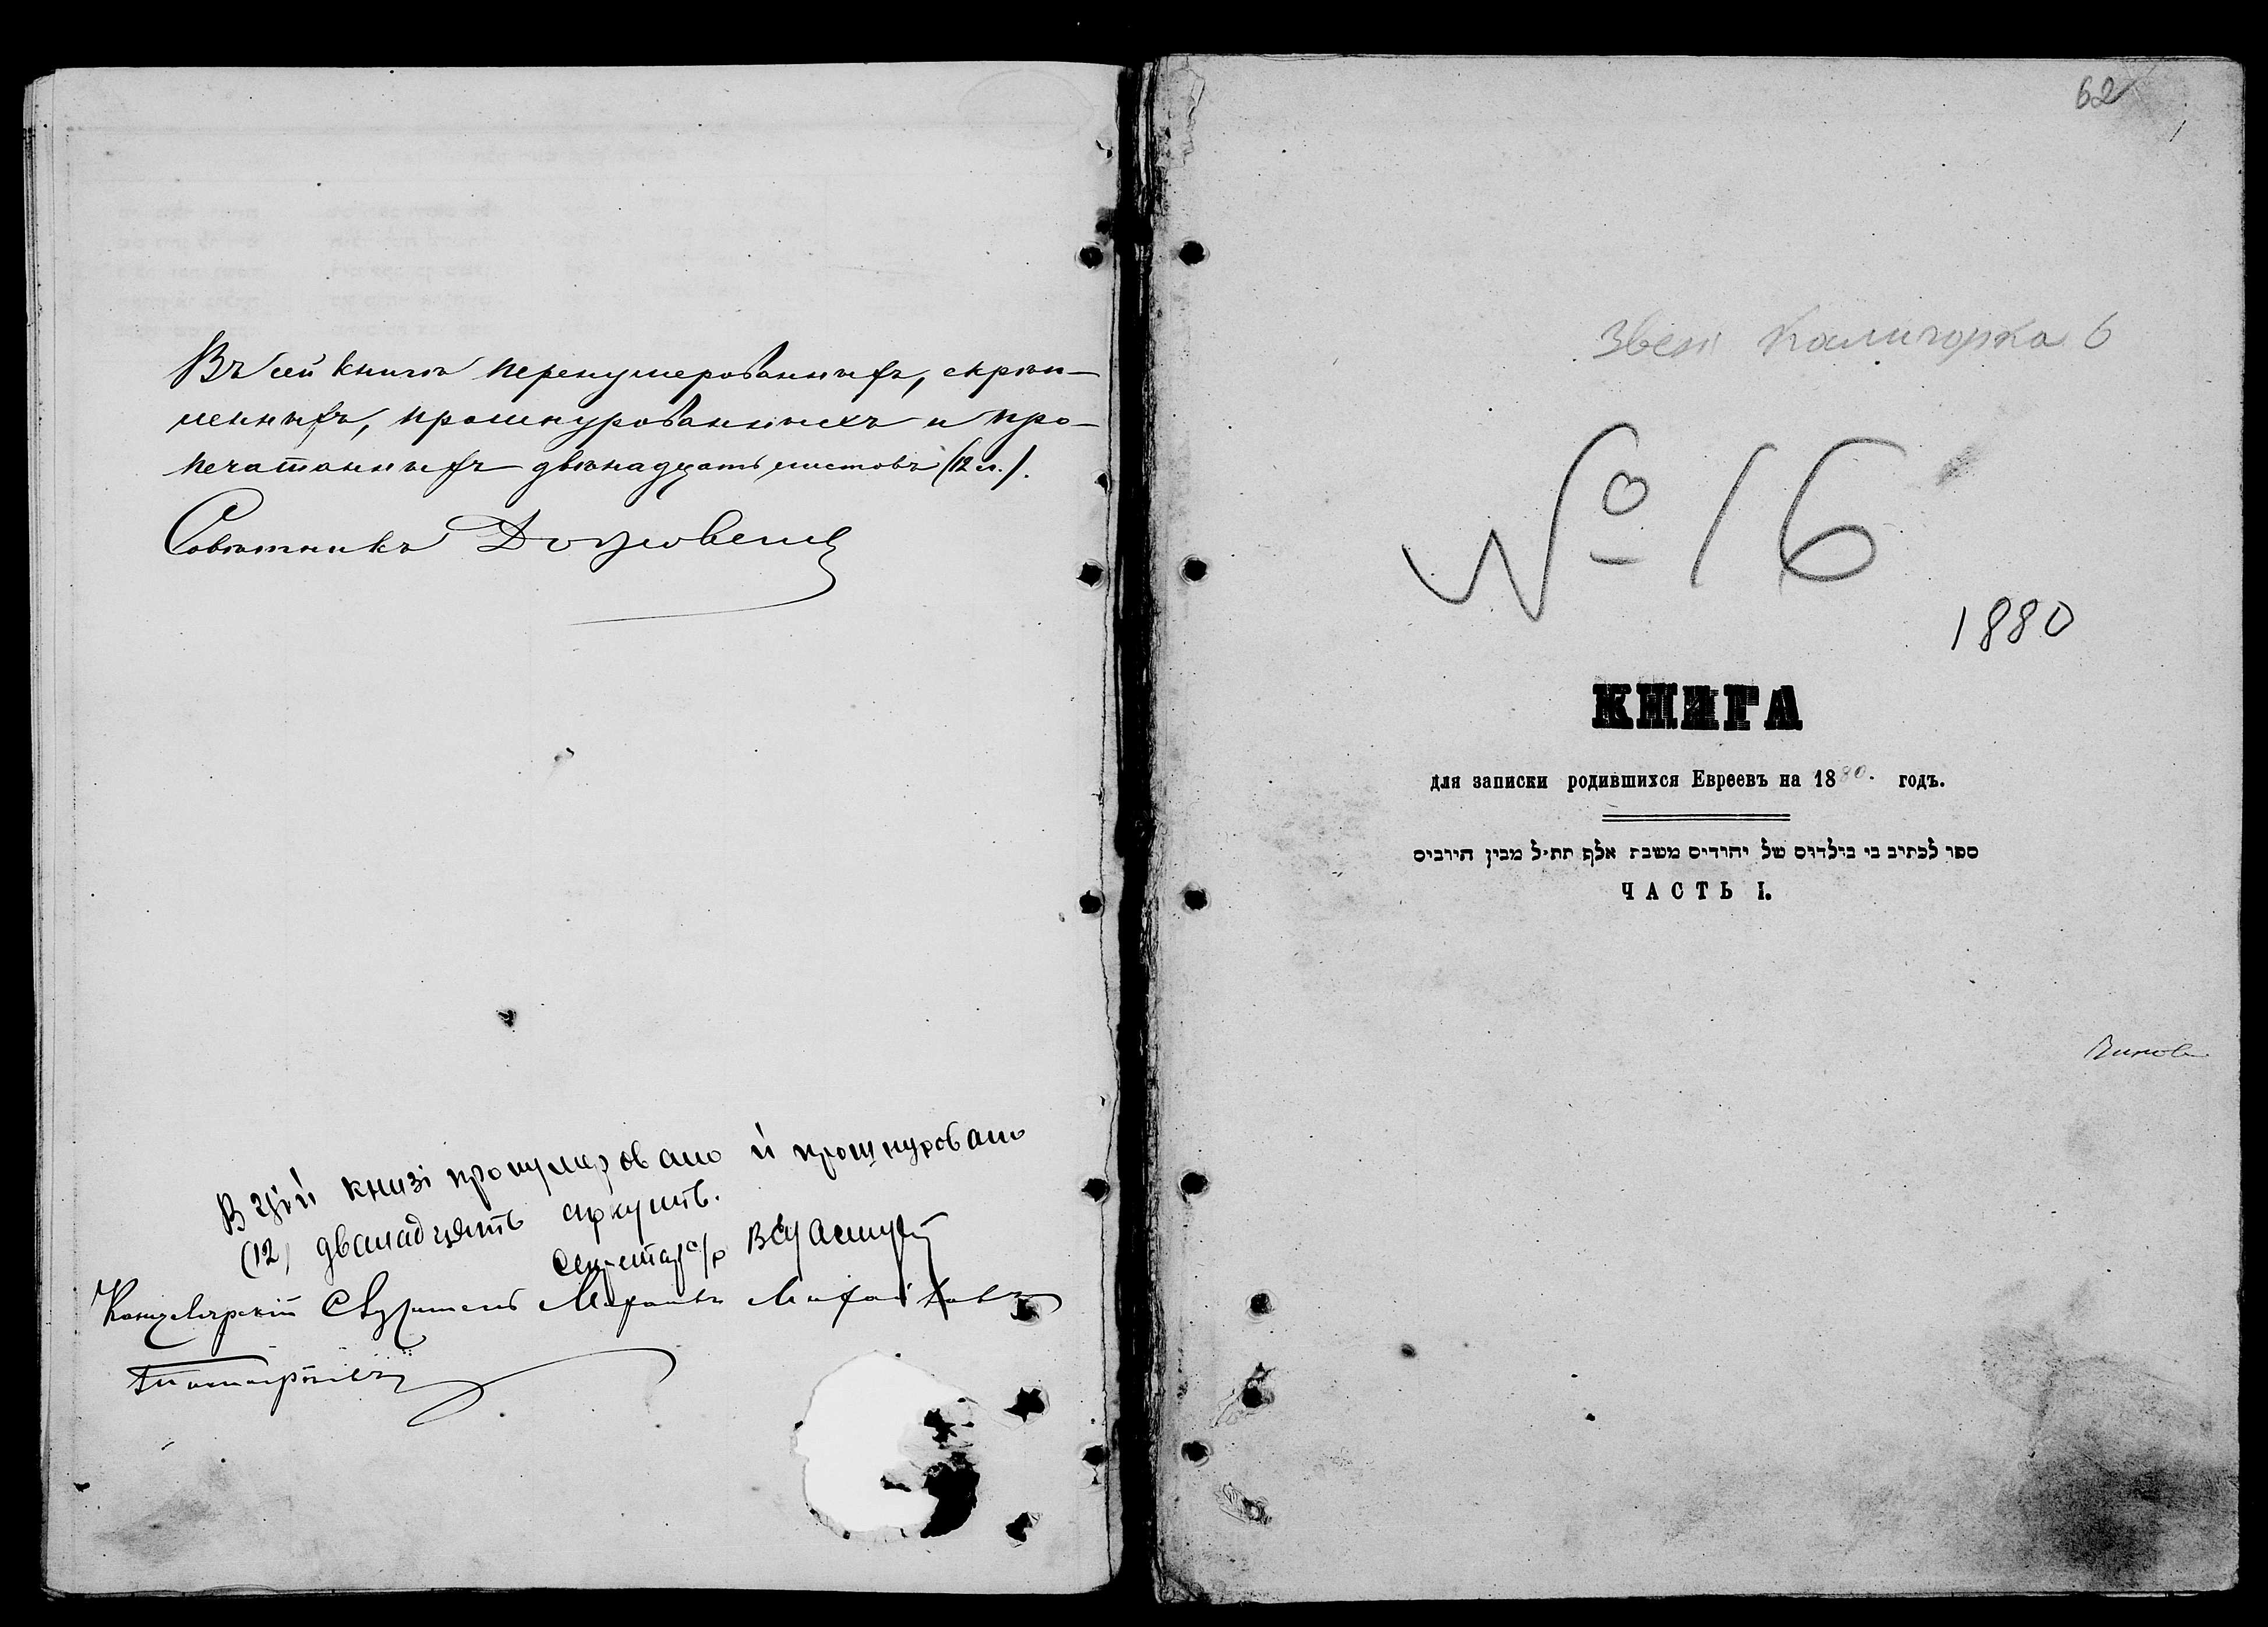 Въ сей книгѣ перенумерованныхъ, скрѣп-
ленныхъ, прошнурованныхъ и про-
печатанныхъ двѣнадцать листовъ (12 л.).
Совѣтникъ
В цій книзі пронумеровано й прошнуровано
(12) дванадцять аркушів.
Секретар
Канцелярскій Служитель
62
Звен Калигорка 6
№ 16
1880
КНИГА
для записки родившихся Евреевъ на 1880. годъ.
ספר לכתיב בי בולדוס של יהודים משנת אלף תת״ל מבין היוביס
ЧАСТЬ I.